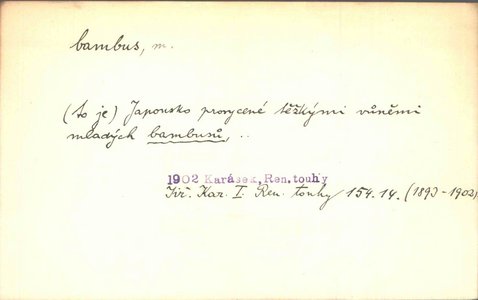 bambus, m.
(to je) Japonsko provoněné těžkými vůněmi
mladých bambusů, ..
1902 Karásek, Ren. touhy
Jiř. Kar. I Ren. touhy 154.14. (1893-1902)